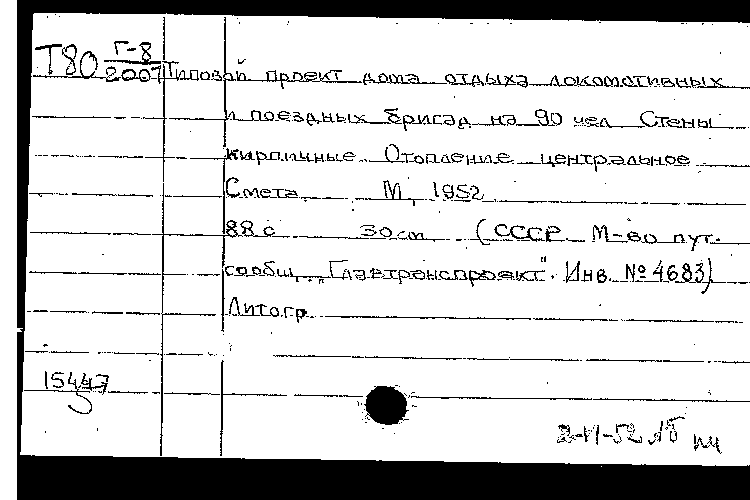 Т80 Г-8
2007 Типовой проект дома отдыха локомотивных
и поездных бригад на 90 чел Стены
кирпичные Отопление центральное
Смета М, 1952
88 с 30 см (СССР М-во пут.
сообщ. "Главтранспроект". Инв. № 4683)
Литогр
15447
2-VI-52